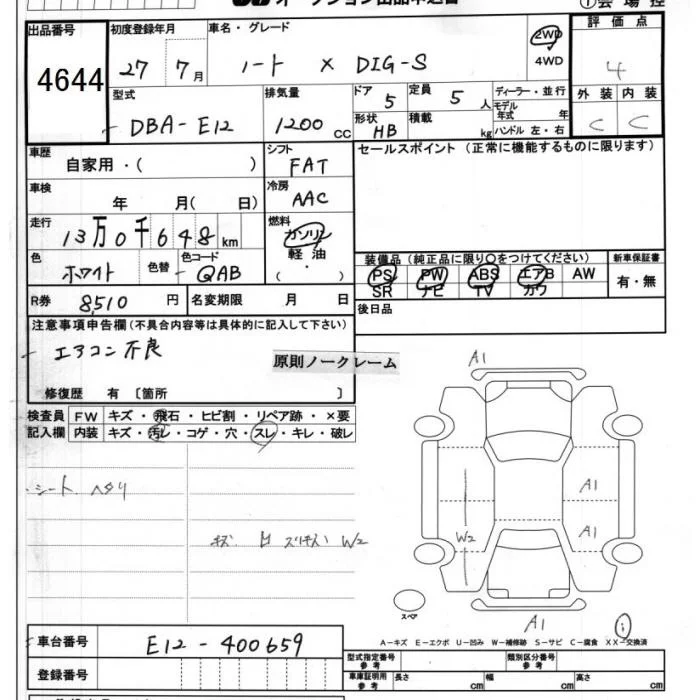 出品番号
4644
初度登録年月
27 7月
車名・グレード
ノート X DIG-S
2WD
4WD
評価点
4
外装 内装
C C
型式
DBA-E12
排気量
1200 CC
ドア 5
定員 5 人
ディーラー・並行
モデル年式 年
形状 HB
積載 kg
ハンドル 左・右
車歴
自家用・( )
シフト
FAT
セールスポイント (正常に機能するものに限ります)
車検
年 月( 日)
冷房
AAC
走行
13万0千648km
燃料
ガソリン
軽油
・
( )
色
ホワイト
色替
色コード
QAB
装備品 (純正品に限り○をつけてください)
PS PW ABS エアB AW
SR ナビ TV カワ
新車保証書
有・無
R券 8,510 円
名変期限 月 日
後日品
注意事項申告欄(不具合内容等は具体的に記入して下さい)
エアコン不良
原則ノークレーム
修復歴 有 〔箇所 〕
検査員記入欄
FW キズ・飛石・ヒビ割・リペア跡・×要
内装 キズ・汚レ・コゲ・穴・スレ・キレ・破レ
シート ヘタリ
W2
A1
A1
A1
W2
A1
スペア
A-キズ E-エクボ U-凹み W-補修跡 S-サビ C-腐食 XX-交換済
車台番号
E12-400659
登録番号
型式指定番号
参考
類別区分番号
参考
車庫証明用
参考
長さ cm
幅 cm
高さ cm